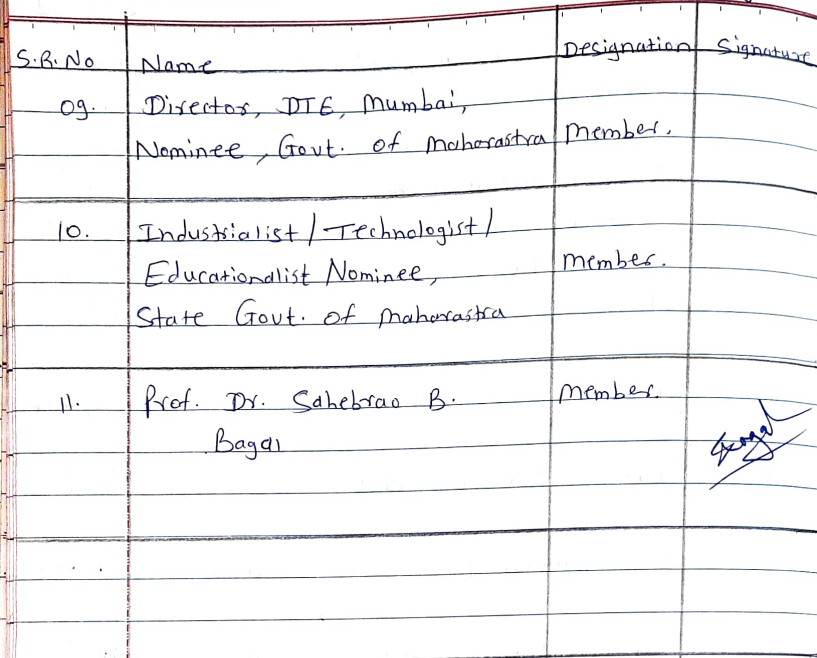 S.R. No Name Designation Signature
09. Director, DTE, Mumbai,
Nominee, Govt. of Maharastra Member.
10. Industrialist / Technologist /
Educationalist Nominee, Member.
State Govt. of Maharastra
11. Prof. Dr. Sahebrao B. Member.
Bagal